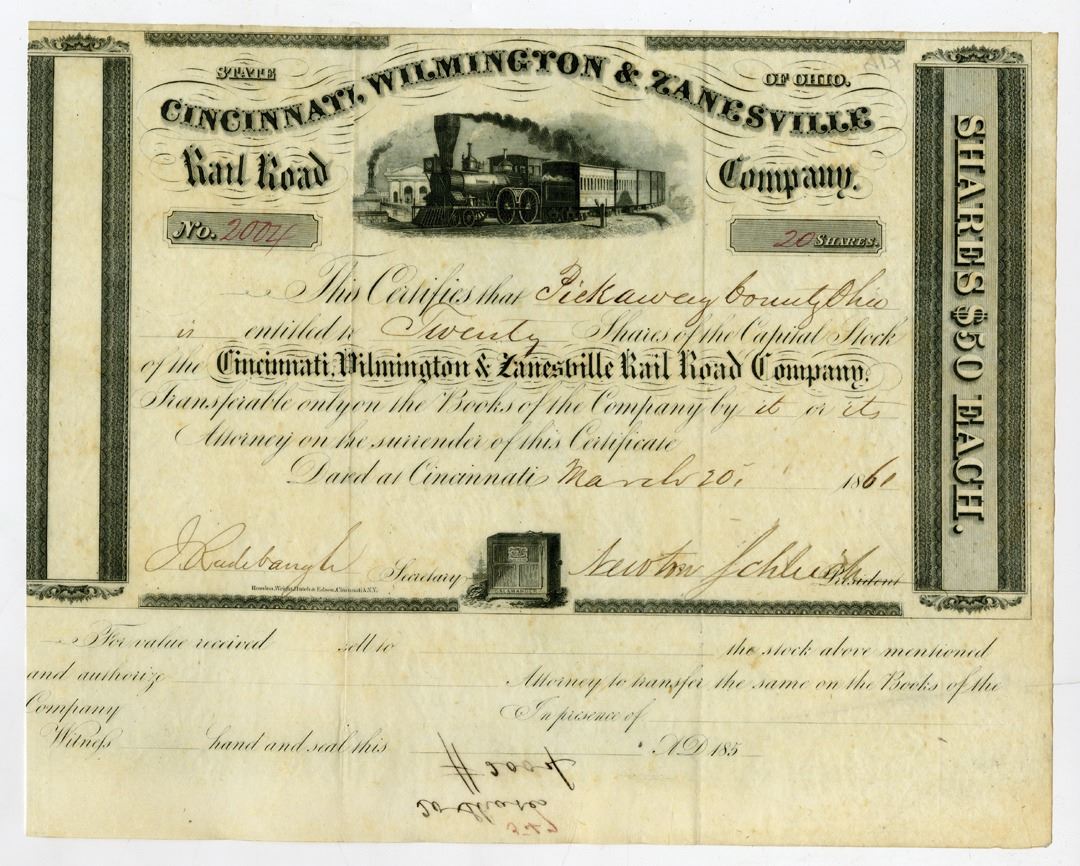 STATE OF OHIO.
CINCINNATI, WILMINGTON & ZANESVILLE
Rail Road Company.
No. 2004 20 SHARES.
This Certifies that Pickaway County Ohio
is entitled to Twenty Shares of the Capital Stock
of the Cincinnati, Wilmington & Zanesville Rail Road Company.
Transferable only on the Books of the Company by it or its
Attorney on the surrender of this Certificate
Dated at Cincinnati March 20, 1861
J. Radebaugh Secretary Newton Schleich President
SALAMANDER
SHARES $50 EACH.
For value received sell to the stock above mentioned
and authorize Attorney to transfer the same on the Books of the
Company In presence of
Witness hand and seal this A.D. 185
# 2004
20 Shares